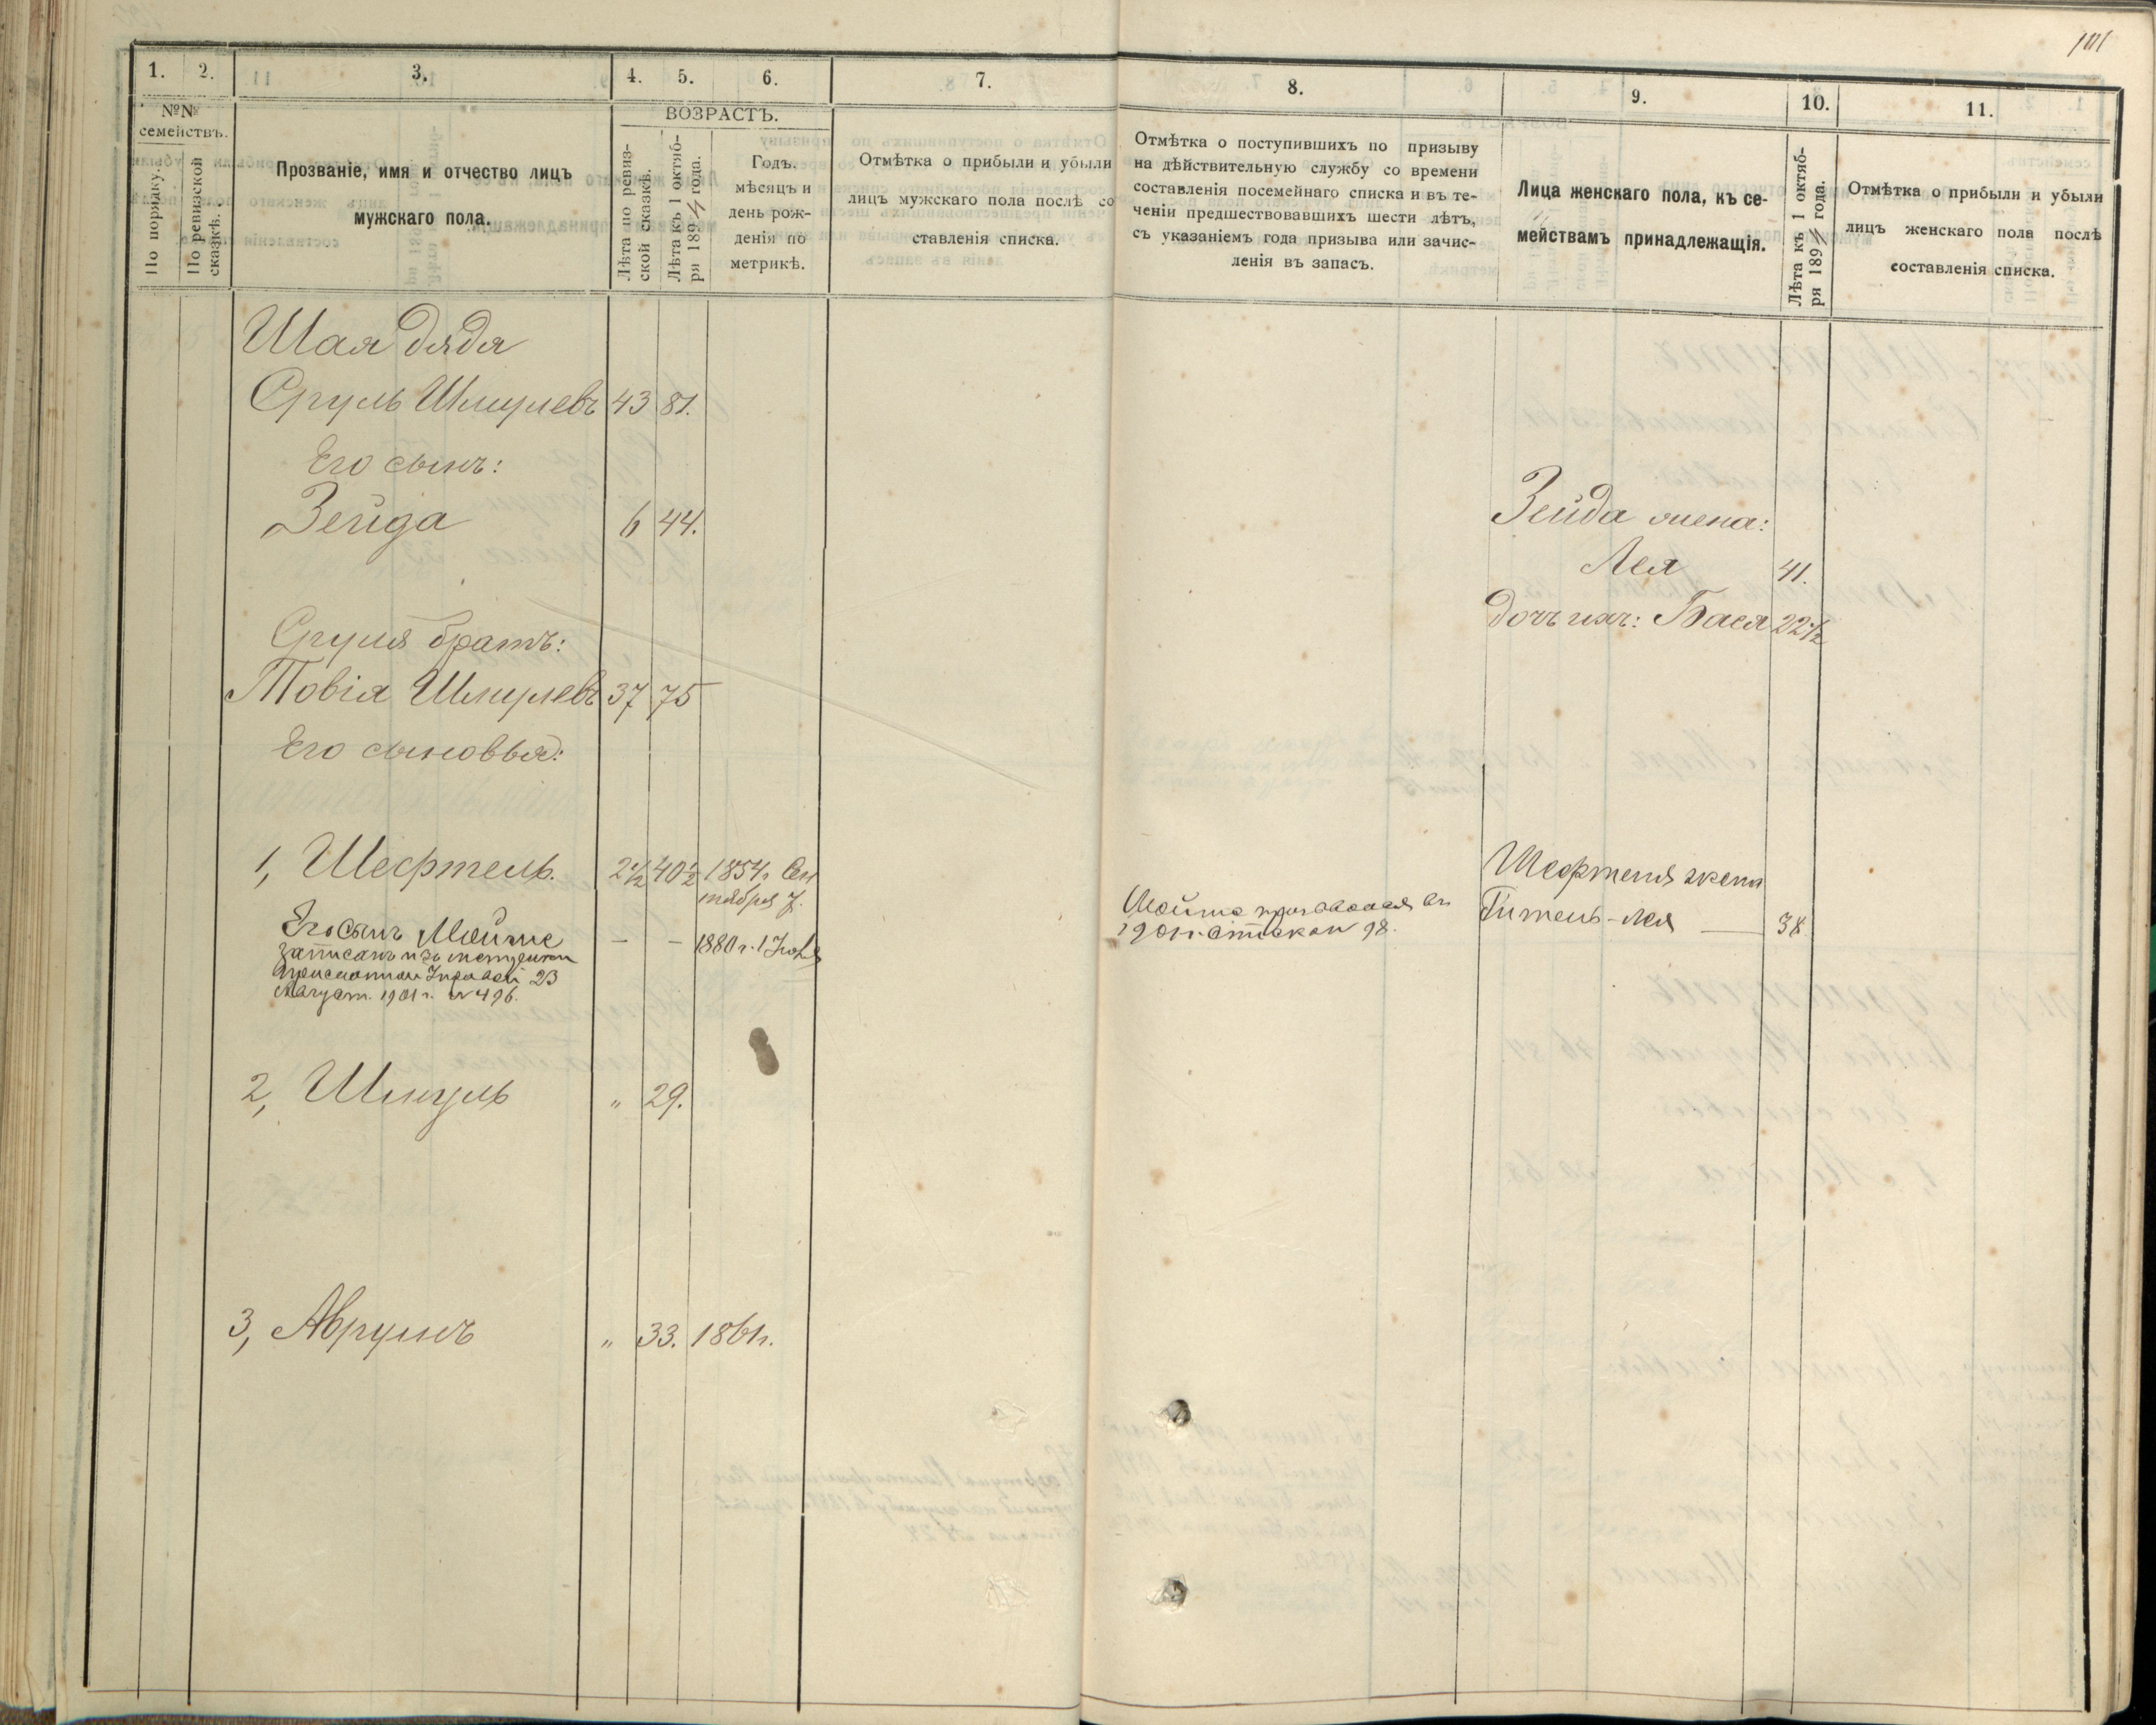 101
1. 2. 3. 4. 5. 6. 7. 8. 9. 10. 11.
№№ семействъ.
По порядку.
По ревизской сказкѣ.
Прозваніе, имя и отчество лицъ
мужскаго пола.
ВОЗРАСТЪ.
Лѣта по ревиз-
ской сказкѣ.
Лѣта къ 1 октяб-
ря 1894 года.
Годъ.
мѣсяцъ и
день рож-
денія по
метрикѣ.
Отмѣтка о прибыли и убыли
лицъ мужскаго пола послѣ со
ставленія списка.
Отмѣтка о поступившихъ по призыву
на дѣйствительную службу со времени
составленія посемейнаго списка и въ те-
ченіи предшествовавшихъ шести лѣтъ,
съ указаніемъ года призыва или зачис-
ленія въ запасъ.
Лица женскаго пола, къ се-
мействамъ принадлежащія.
Лѣта къ 1 октяб-
ря 1894 года.
Отмѣтка о прибыли и убыли
лицъ женскаго пола послѣ
составленія списка.
Шая дядя
Сруль Шмулевъ 43 81.
Его сынъ:
Зейда 6 44.
Зейда жена:
Лея 41.
дочь ихъ: Бася 22 1/2
Сруля братъ:
Товія Шмулевъ 37 75
Его сыновья:
1, Шефтель. 2 1/2 40 1/2 1854 г. Сен
тября 7.
Шефтеля жена
Гитель-Лея 38
Его сынъ Мойше — — 1880 г. 1 Іюля
записанъ изъ
23
Август. 1901 г. № 496.
Мойше призывался въ
1901 г. 98.
2, Шмуль " 29.
3, Аврумъ " 33. 1861 г.